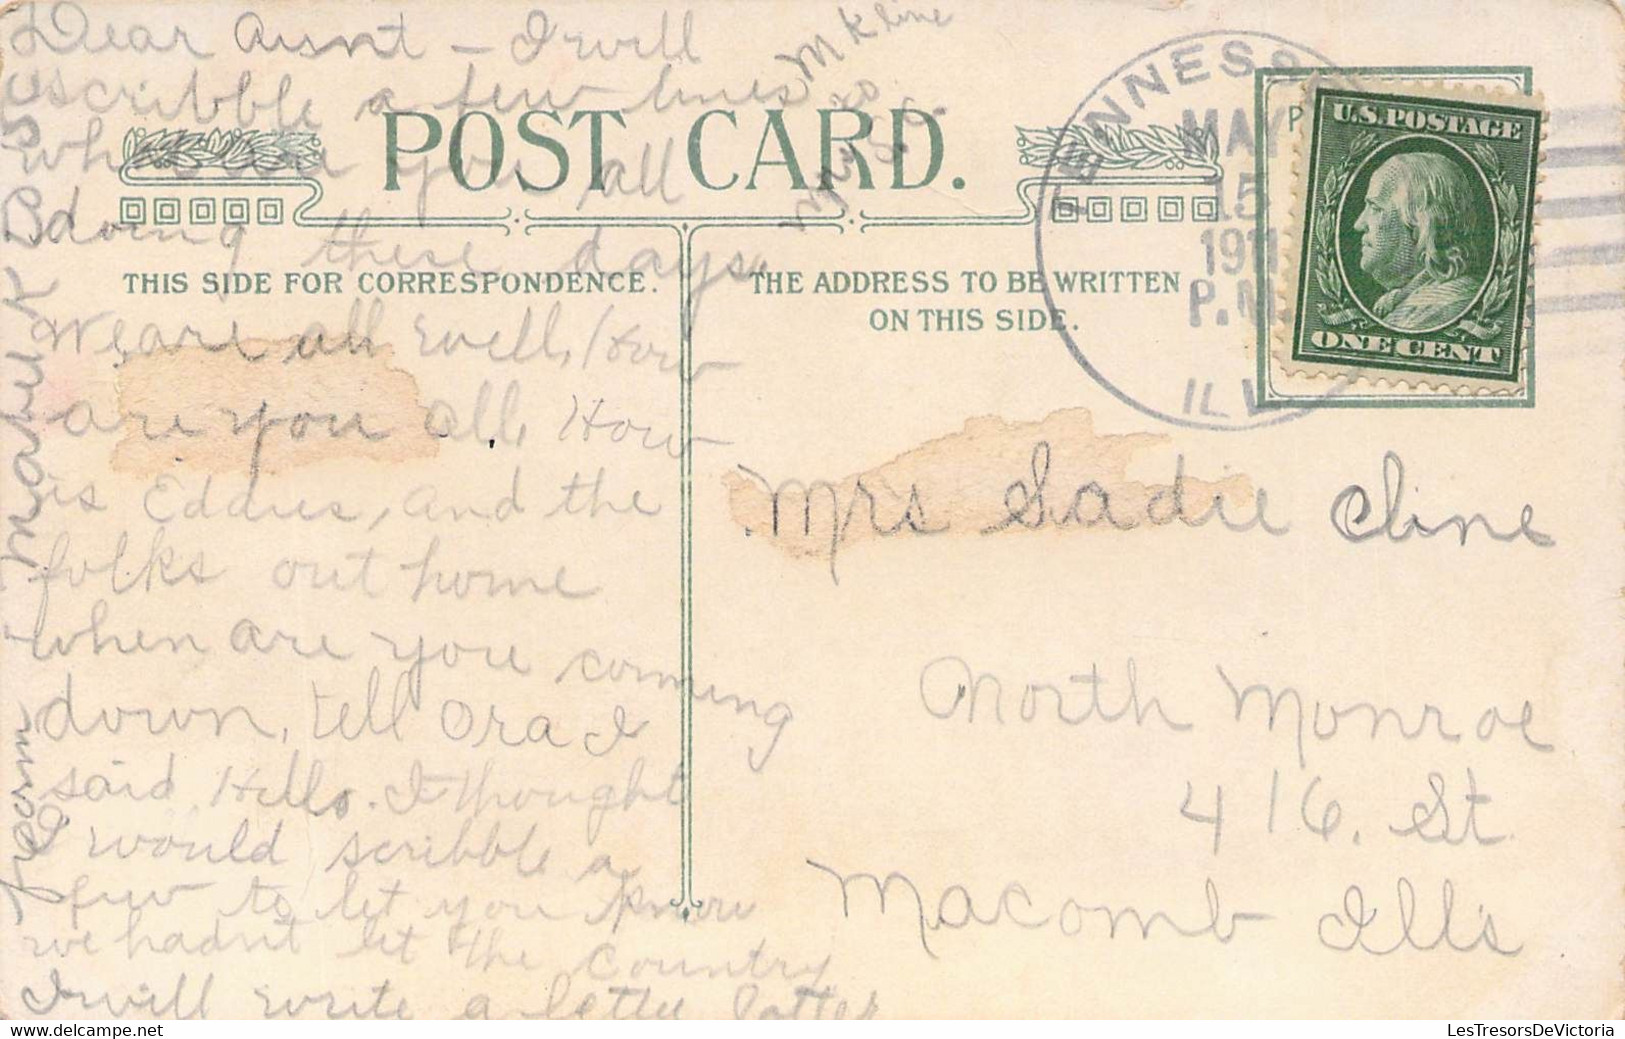 Dear Aunt – I will
scribble a few lines
what are you all
doing these days.
We are all well, How
are you all, How
is Eddies, and the
folks out home
when are you coming
down, tell Ora I
said Hello. I thought
I would scribble a
few to let you know
we hadn't let the country
I will write a letter latter
From Mabel K B
M Kline
POST CARD.
THIS SIDE FOR CORRESPONDENCE.
THE ADDRESS TO BE WRITTEN
ON THIS SIDE.
TENNESS
MAY
15
1911
P.M.
ILL
U.S. POSTAGE
ONE CENT
Mrs Sadie Cline
North Monroe
416. St
Macomb Ills
LesTresorsDeVictoria
http://lestresorsdevictoria.delcampe.net